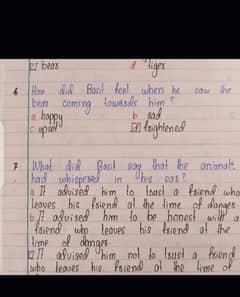 c bear d tiger
6 How did Basil feel when he saw the
bear coming towards him?
a happy b sad
c upset d frightened
7 What did Basil say that the animal
had whispered in his ear?
a It advised him to trust a friend who
leaves his friend at the time of danger
b It advised him to be honest with a
friend who leaves his friend at the
time of danger.
c It advised him not to trust a friend
who leaves his friend at the time of